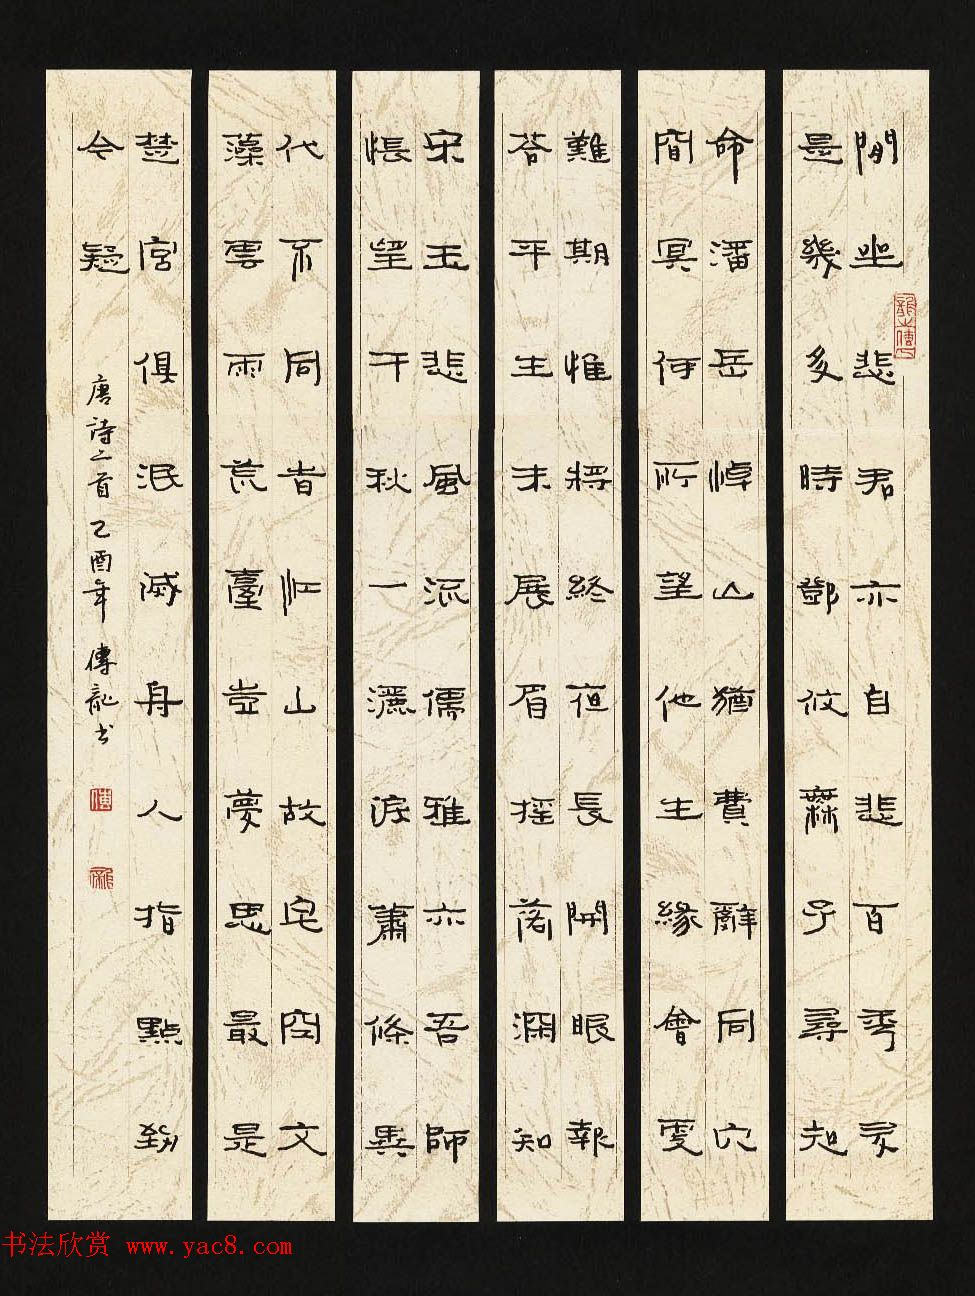 閒坐悲君亦自悲百秊
是幾多時鄧攸無子尋知
命潘岳悼亡猶費辭同穴
窅冥何所望他生緣會更
難期惟將終夜長開眼報
答平生未展眉搖落深知
宋玉悲風流儒雅亦吾師
悵望千秋一灑淚蕭條異
代不同時江山故宅空文
藻雲雨荒臺豈夢思最是
楚宮俱泯滅舟人指點到
今疑
唐詩二首 乙酉年 傳龍書
书法欣赏 www.yac8.com